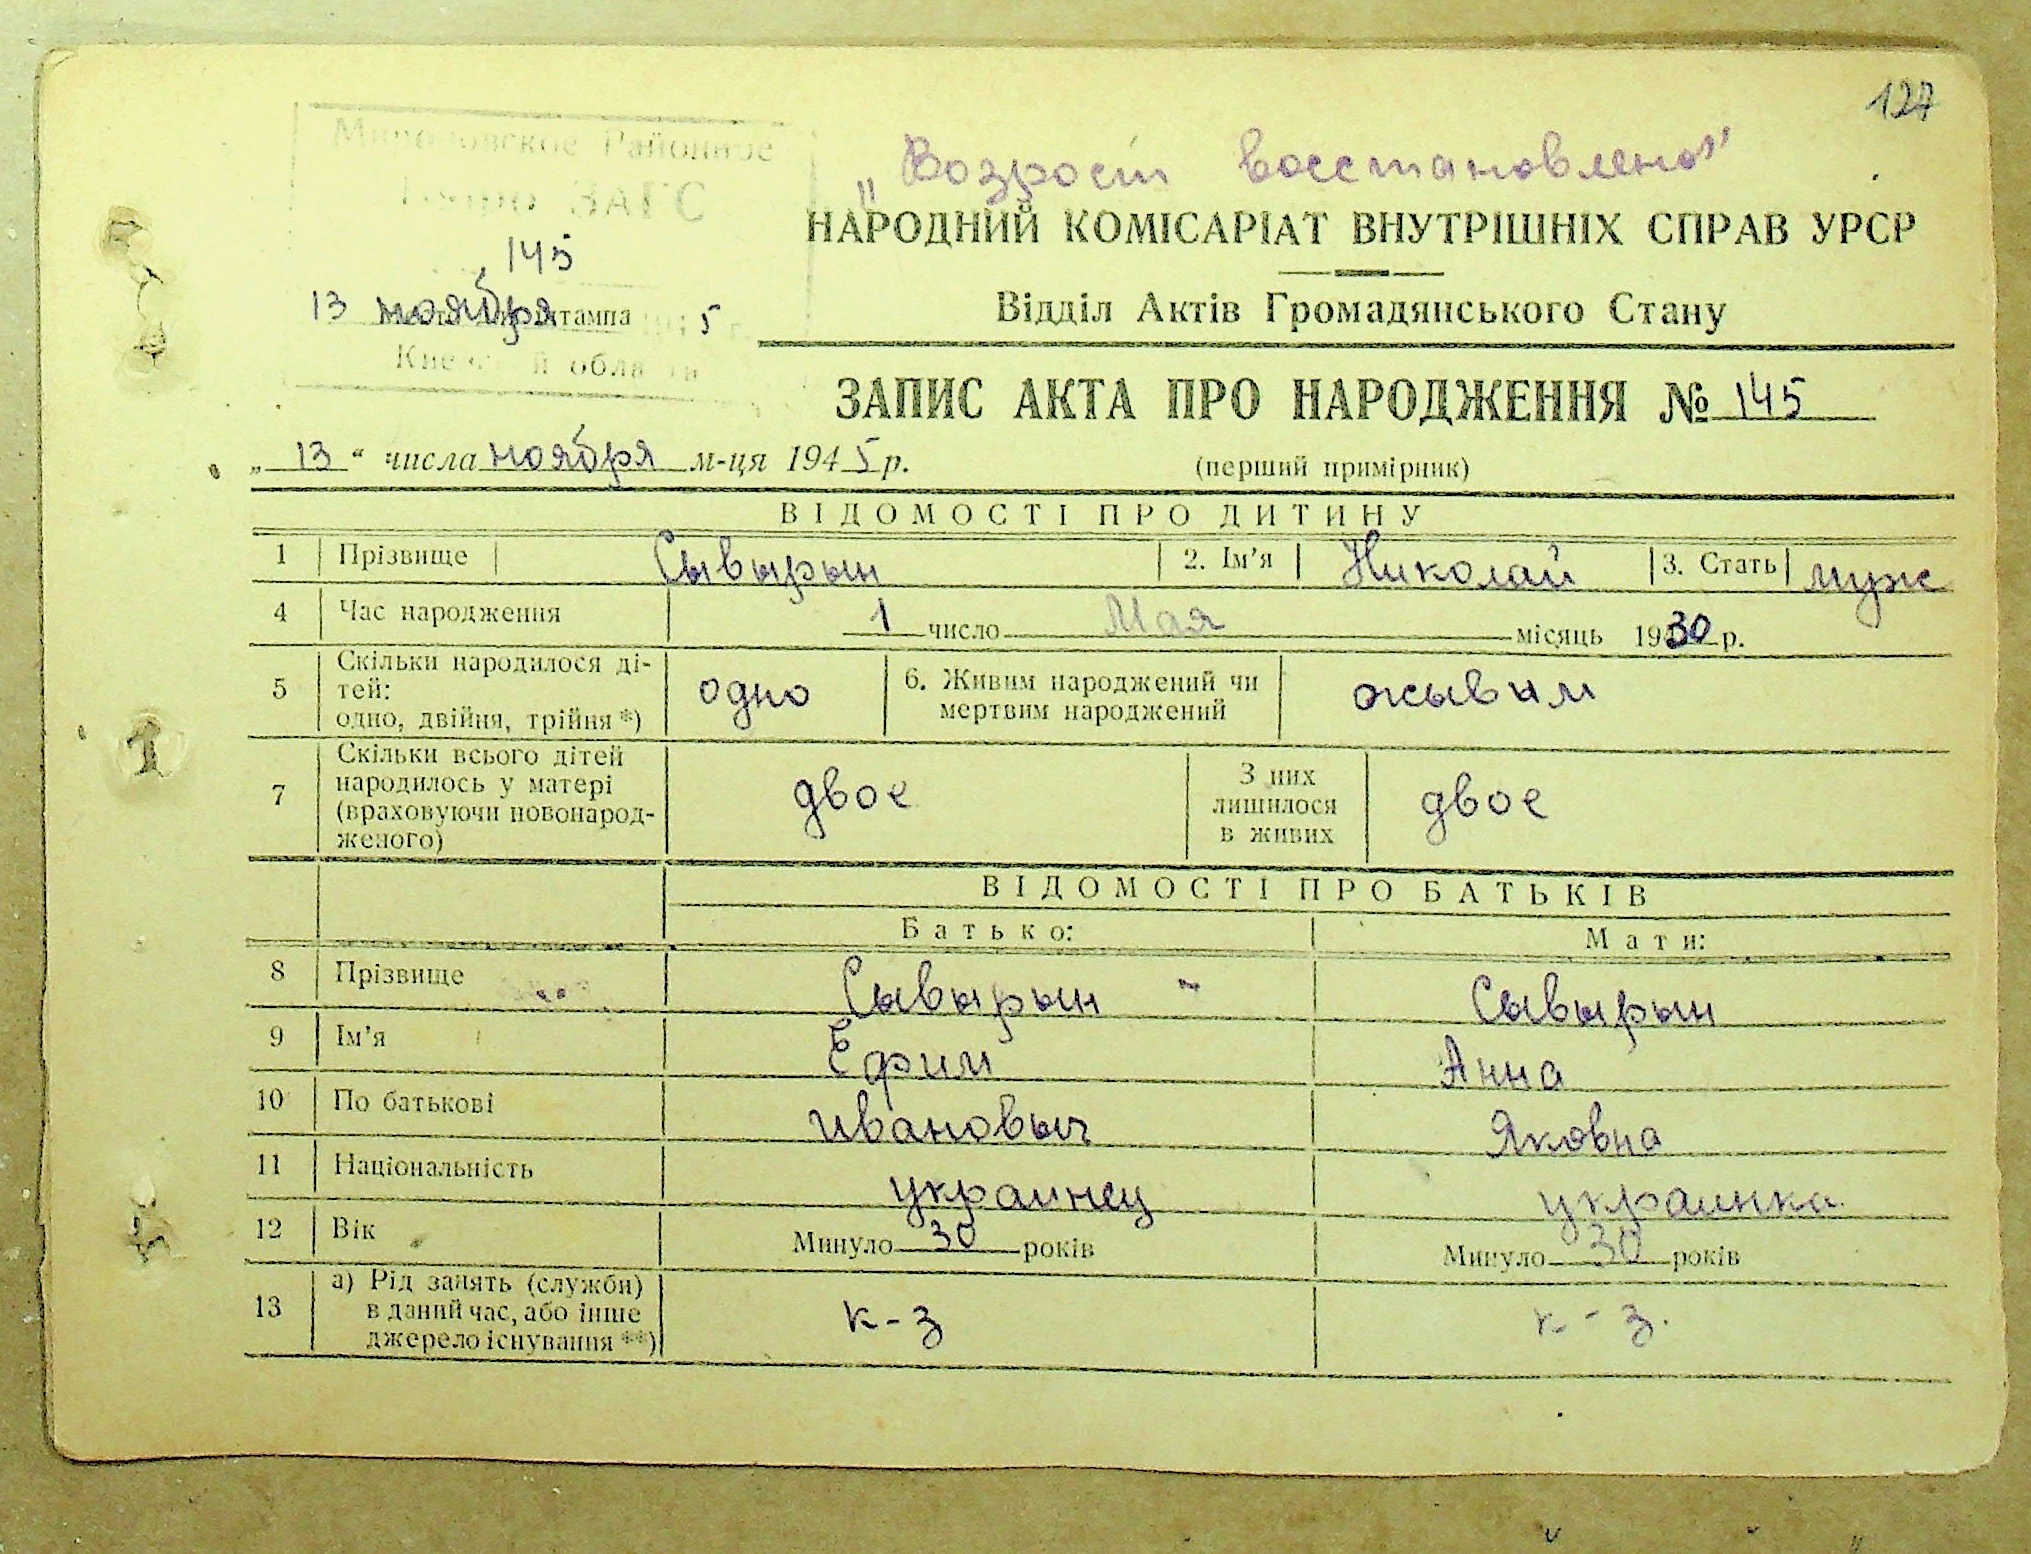 127
Мироновское Районное
Бюро ЗАГС
„Возрост восстановлено"
НАРОДНИЙ КОМІСАРІАТ ВНУТРІШНІХ СПРАВ УРСР
145
13 ноября 5
штампа
Відділ Актів Громадянського Стану
Киевской области
ЗАПИС АКТА ПРО НАРОДЖЕННЯ № 145
„13“ числа ноября м-ця 1945 р. (перший примірник)
ВІДОМОСТІ ПРО ДИТИНУ
1 Прізвище Сывырын 2. Ім'я Николай 3. Стать муж
4 Час народження 1 число Мая місяць 1930 р.
5 Скільки народилося ді-
тей:
одно, двійня, трійня *) одно 6. Живим народжений чи
мертвим народжений жывым
7 Скільки всього дітей
народилось у матері
(враховуючи новонарод-
женого) двое З них
лишилося
в живих двое
ВІДОМОСТІ ПРО БАТЬКІВ
Батько: Мати:
8 Прізвище Сывырын Сывырын
9 Ім'я Ефим Анна
10 По батькові Ивановыч Яковна
11 Національність украинец украинка
12 Вік Минуло 30 років Минуло 30 років
13 а) Рід занять (служби)
в даний час, або інше
джерело існування **) к-з к-з.